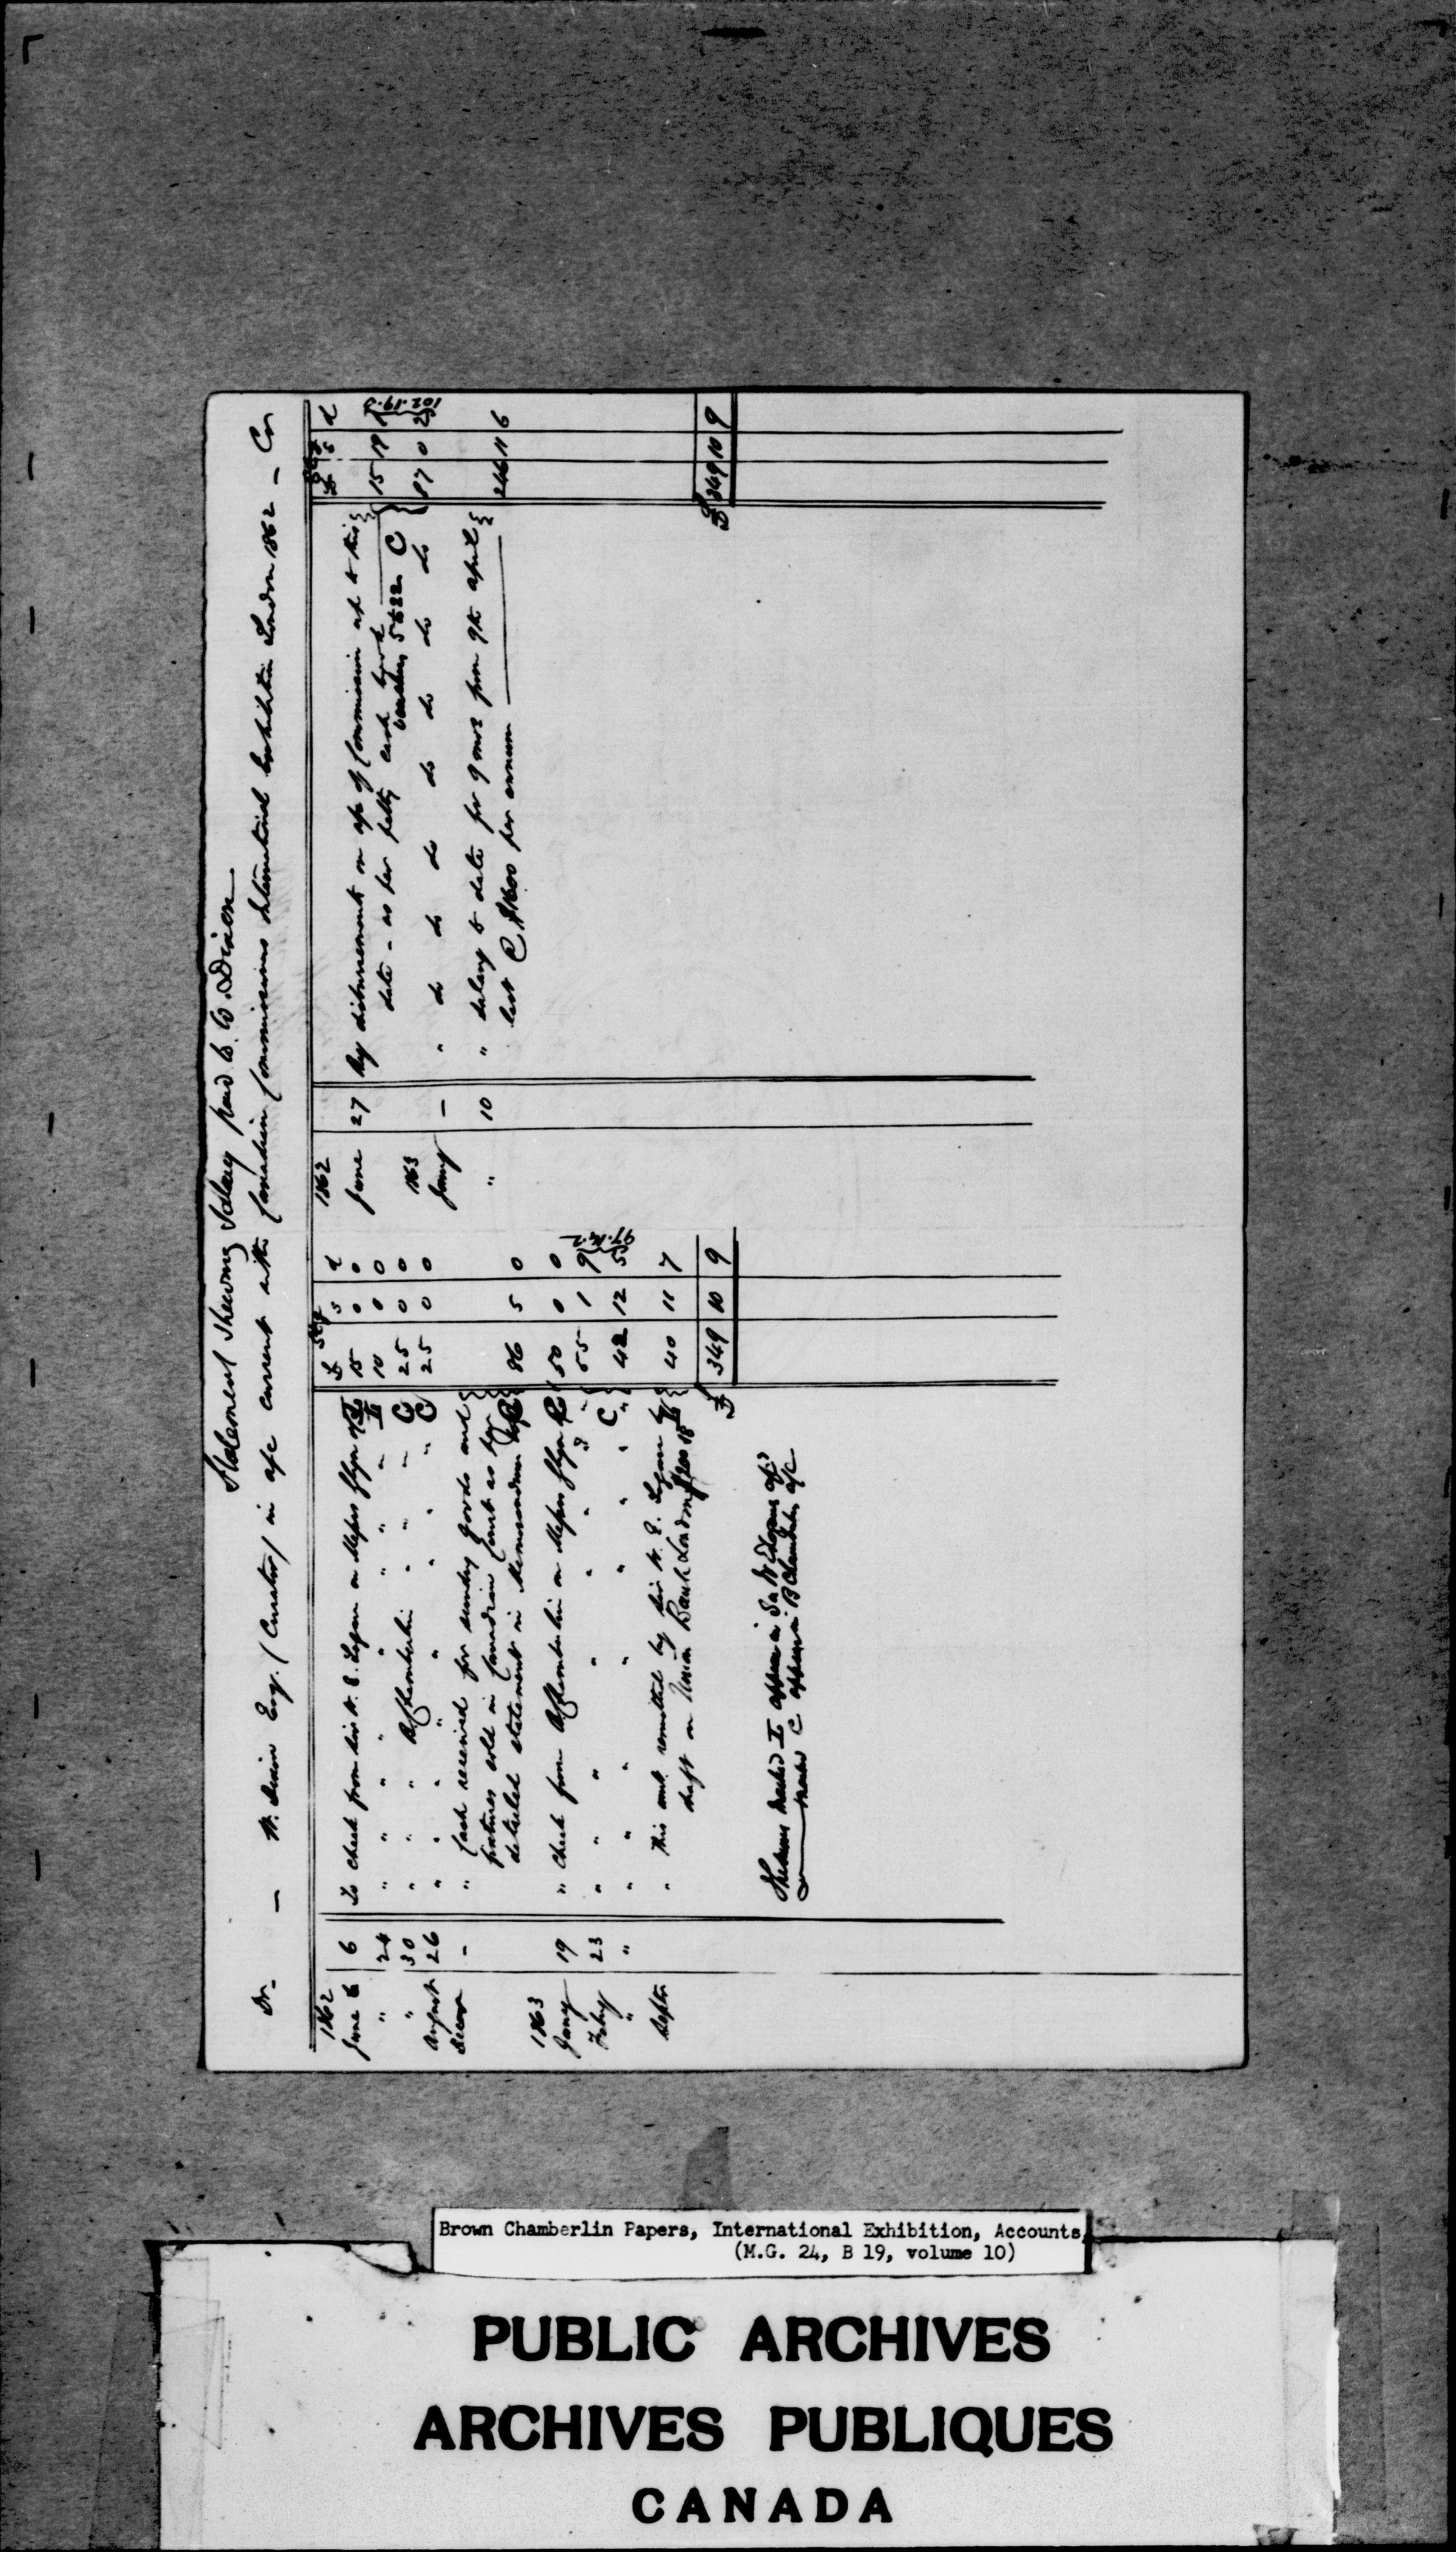 Statement Shewing Salary paid to W. Dixon
Dr - W. Dixon Esq. (Curator) in a/c current with Canadian Commissioners International Exhibition London 1862 - Cr
£ Stg s d
1862
June 6 To check from Sir W. E. Logan on Messrs Glyn 15 0 0
" 24 " " " " " " L 10 0 0
" 30 " " " B Chamberlin " " " C 25 0 0
August 26 " " " " " " " C 25 0 0
Decemr - " Cash received for sundry goods and
fixtures sold in Canadian Court as per
detailed statement in Memorandum 86 5 0
1863
Jany 19 " Check from B Chamberlin on Messrs Glyn 50 0 0
Feby 23 " " " " " " 55 1 9
" " " " " " " C 42 12 5
97.14.2
Septr " This amt remitted by Sir W. E. Logan by
draft on Union Bank London 40 11 7
£ 349 10 9
The sums marked L appear in Sir W E Logans a/c
marked C appear in B Chamberlin a/c
£ Stg s d
1862
June 27 By disbursements on a/c of Commission up to this
date - as per petty cash book 15 19
vouchers 5 & 22 C
1863
Jany - " do do do do do do do 87 0
102.19.3
" 10 " Salary to date for 9 mos from 9th April
last @ $1600 per annum 246 11 6
£ 349 10 9
Brown Chamberlin Papers, International Exhibition, Accounts,
(M.G. 24, B 19, volume 10)
PUBLIC ARCHIVES
ARCHIVES PUBLIQUES
CANADA